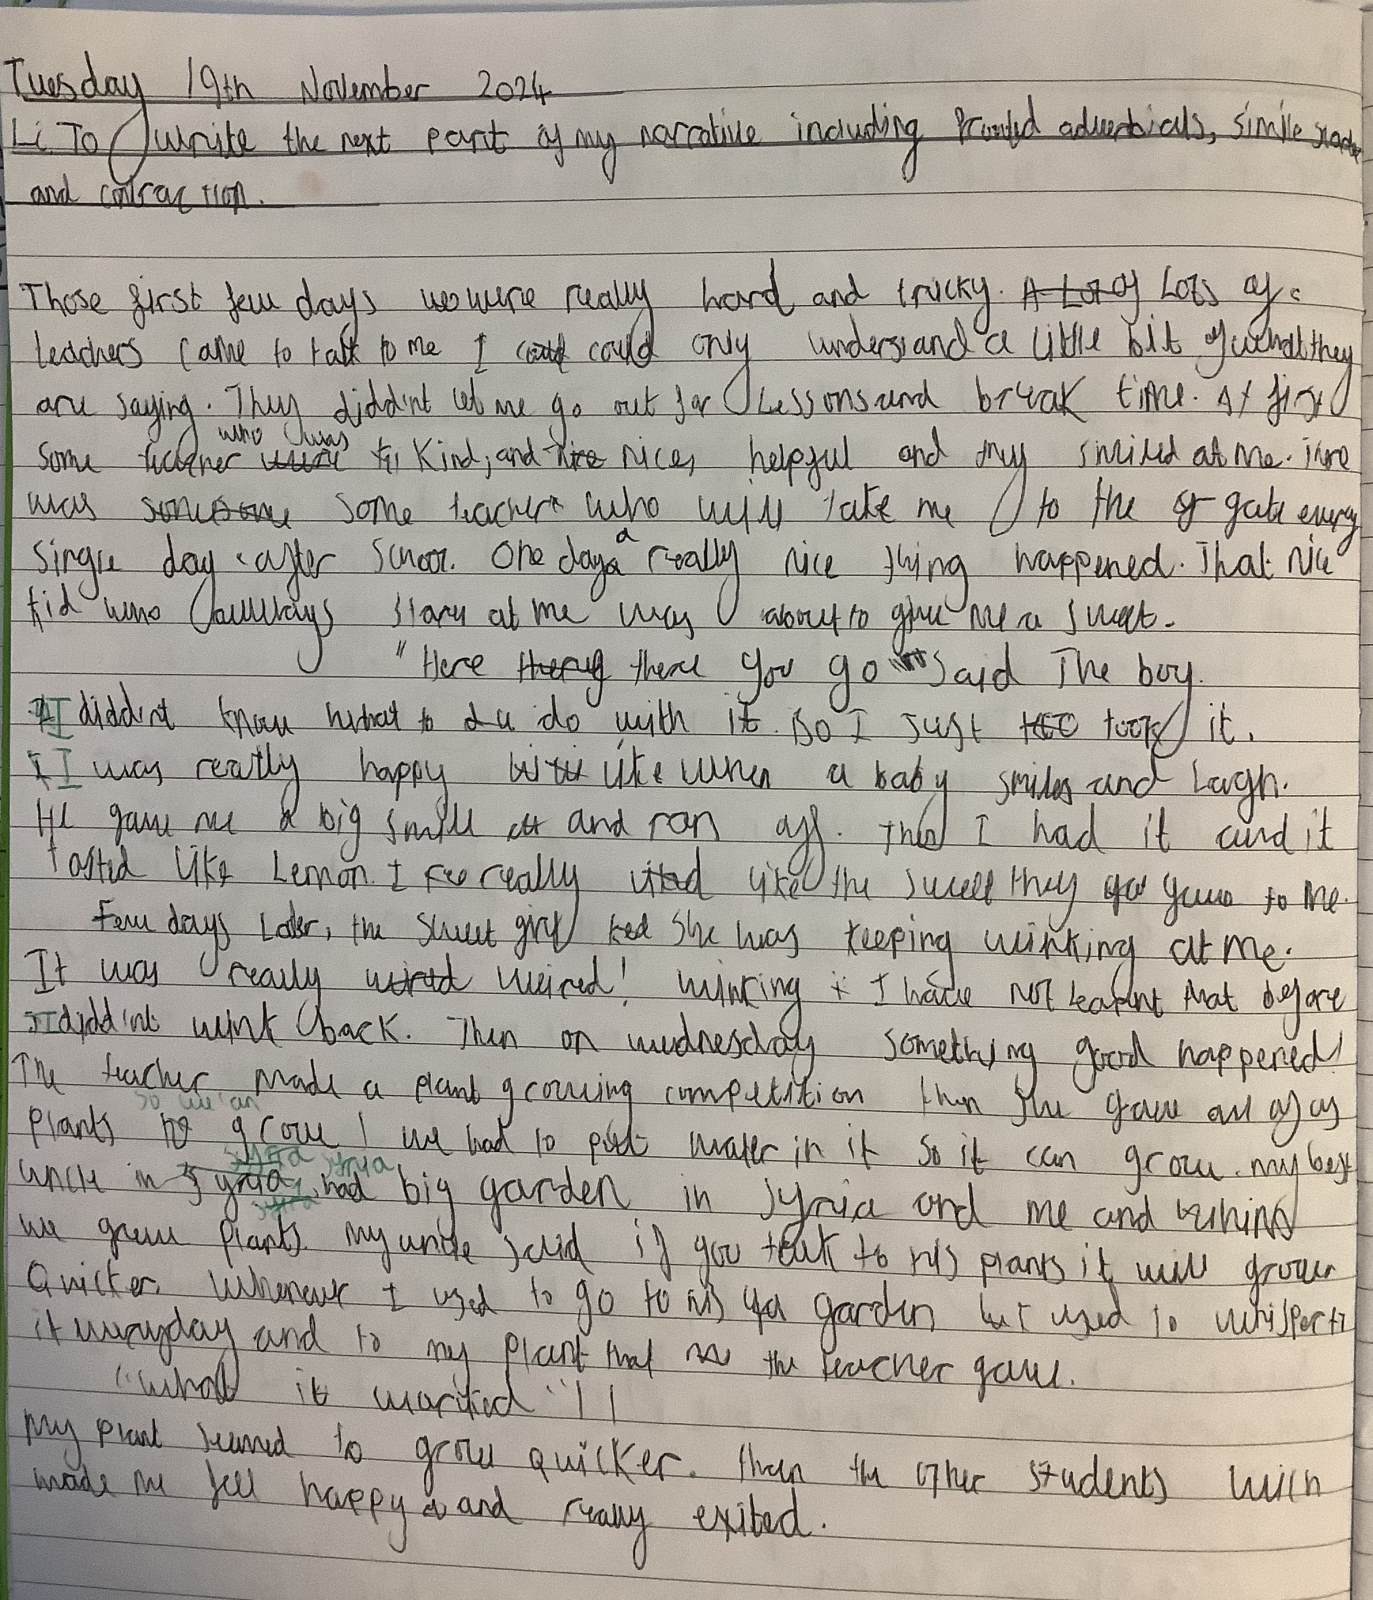 Tuesday 19th November 2024
Li To write the next part of my narrative including fronted adverbials, simile
and contraction.
Those first few days were really hard and tricky. A Lot of Lots of
teachers came to talk to me I could could only understand a little bit of what they
are saying. They diddint let me go out for Lessons and break time. At first
who was
some teacher were Kind, and nice nice, helpful and they smiled at me. There
was someone some teachers who will take me to the gate every
single day after school. One day a really nice thing happened. That nice
kid who allways stare at me was about to give me a sweet.
"Here there you go" said The boy.
I diddint know what to do with it. So I Just took it.
I was really happy like when a baby smiles and Lagh.
He gave me a big smile and ran off. Then I had it and it
tasted like Lemon. I really like the sweet they gave to me.
Few days Later, the sweet girl she was keeping winking at me.
It was really weired! winking I have not learnt that before
I diddint wink back. Then on wednesday something good happened!
The teacher made a plant growing competition then she gave all of us
so we can
plants to grow! we had to put water in it so it can grow. my best
syria
uncle in Syria, had big garden in Syria and me and
we grew plants. My uncle said if you talk to his plants it will grow
Quicker. Whenever I used to go to his garden I used to whisper to
it everyday and to my plant that the teacher gave.
"What it worked"!!
My plant seemed to grow quicker. than the other students wich
made me fell happy and really exited.